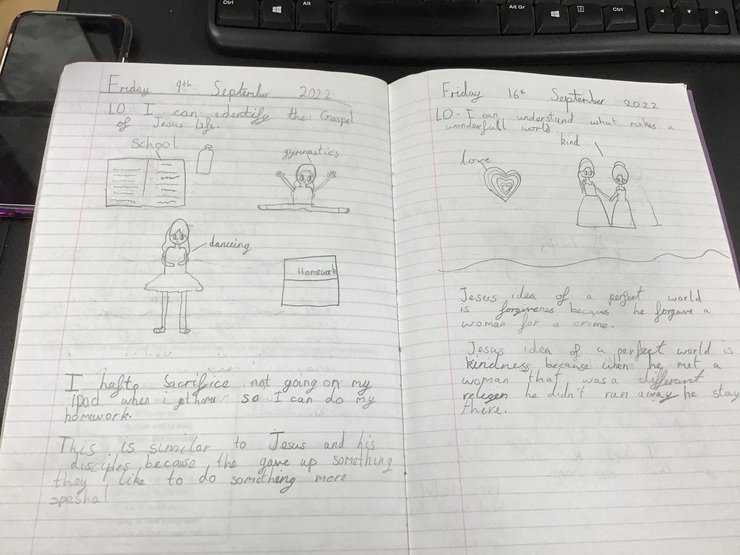 Friday 9th September 2022
LO. I can identify the Gospel
of Jesus life.
School
gymnastics
dancing
Homework
I hafto Sacrifice not going on my
ipad when i get home so I can do my
homework.
This is similar to Jesus and his
disciples because the gave up something
they like to do something more
speshal
Friday 16th September 2022
LO. I can understand what makes a
wonderfull world.
kind
love
Jesus idea of a perfect world
is forgivenes becaus he forgave a
woman for a crime.
Jesus idea of a perfect world is
kindness because when he met a
woman that was a differant
relegen he didn't run away he stay
there.
Ctrl
Alt
Alt Gr
Ctrl